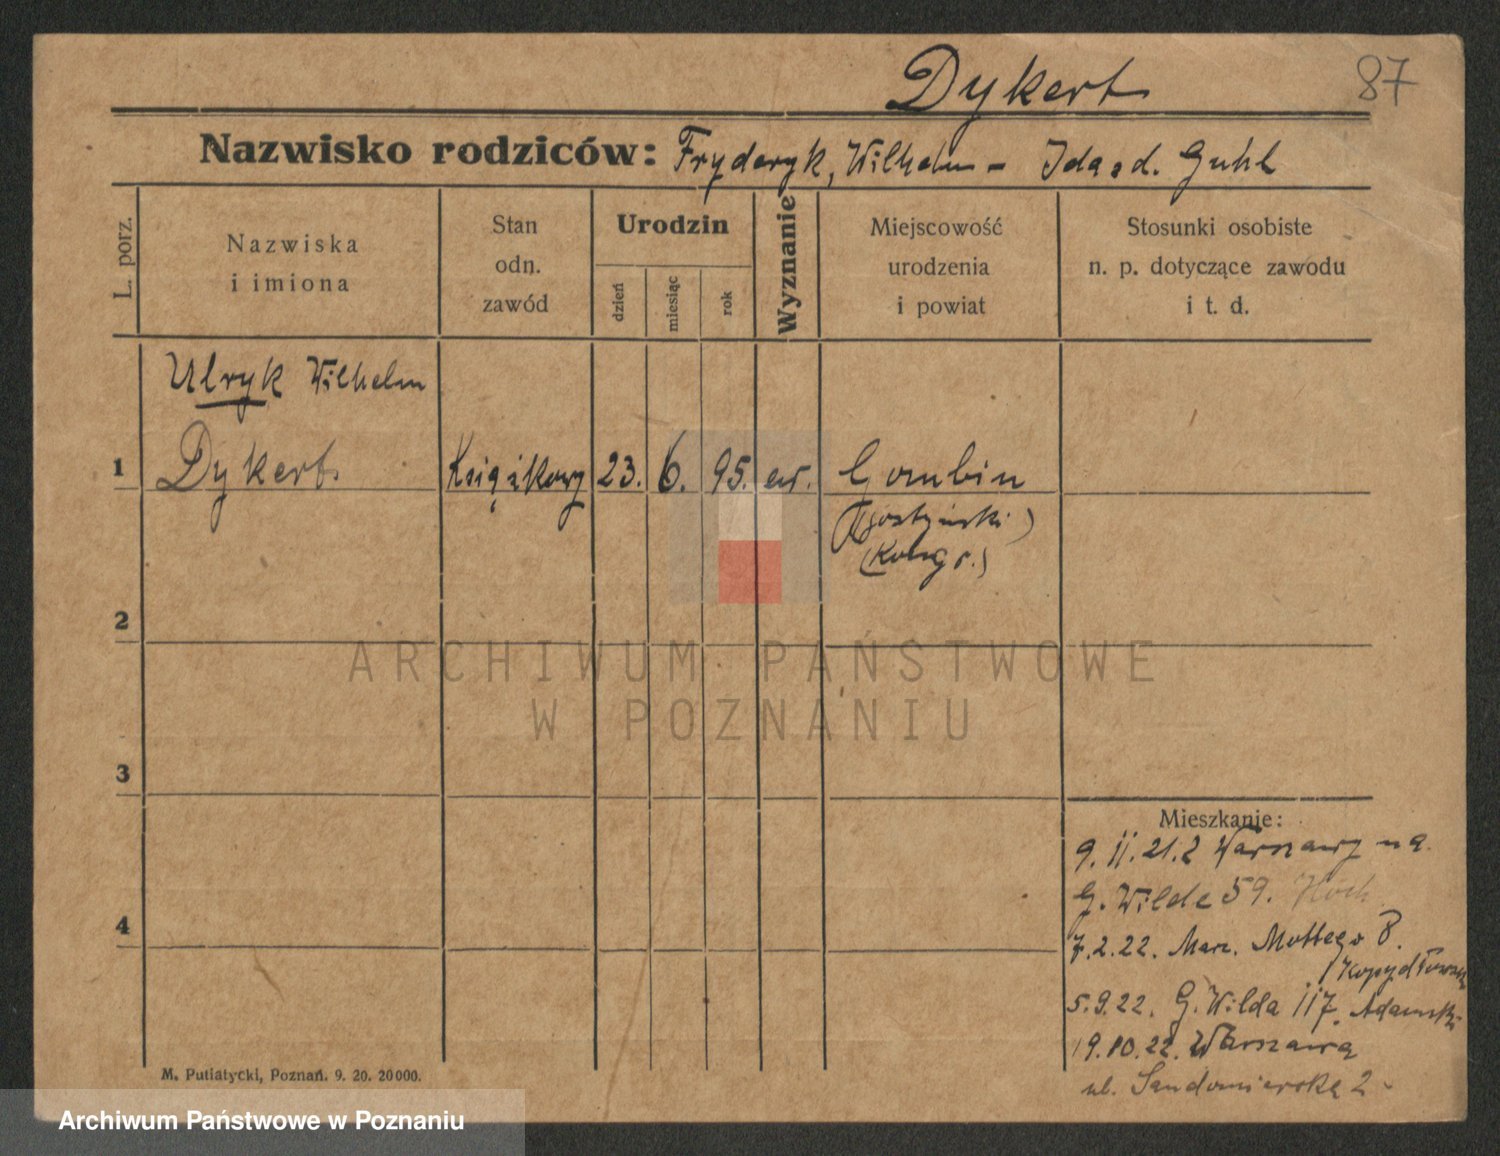 Dykert
87
Nazwisko rodziców: Fryderyk, Wilhelm - Ida z d. Guhl
L. porz.
Nazwiska
i imiona
Stan
odn.
zawód
Urodzin
dzień
miesiąc
rok
Wyznanie
Miejscowość
urodzenia
i powiat
Stosunki osobiste
n. p. dotyczące zawodu
i t. d.
Ulryk Wilhelm
1 Dykert. Książkowy 23. 6. 95. ew. Gombin
(Gostyński)
(Kongr.)
2
ARCHIWUM PAŃSTWOWE
W POZNANIU
3
Mieszkanie:
9. 11. 21. z Warszawy na
G. Wilde 59. Hoch
4
7. 2. 22. Marc. Mottego 8.
Kopydłowski
5. 9. 22. G. Wilda 117. Adamski
19. 10. 22. Warszawa
ul. Sandomierska 2
M. Putiatycki, Poznań. 9. 20. 20000.
Archiwum Państwowe w Poznaniu